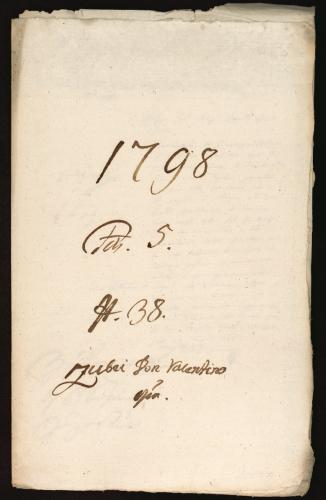 1798
5.
38.
Zubei Don Valentino